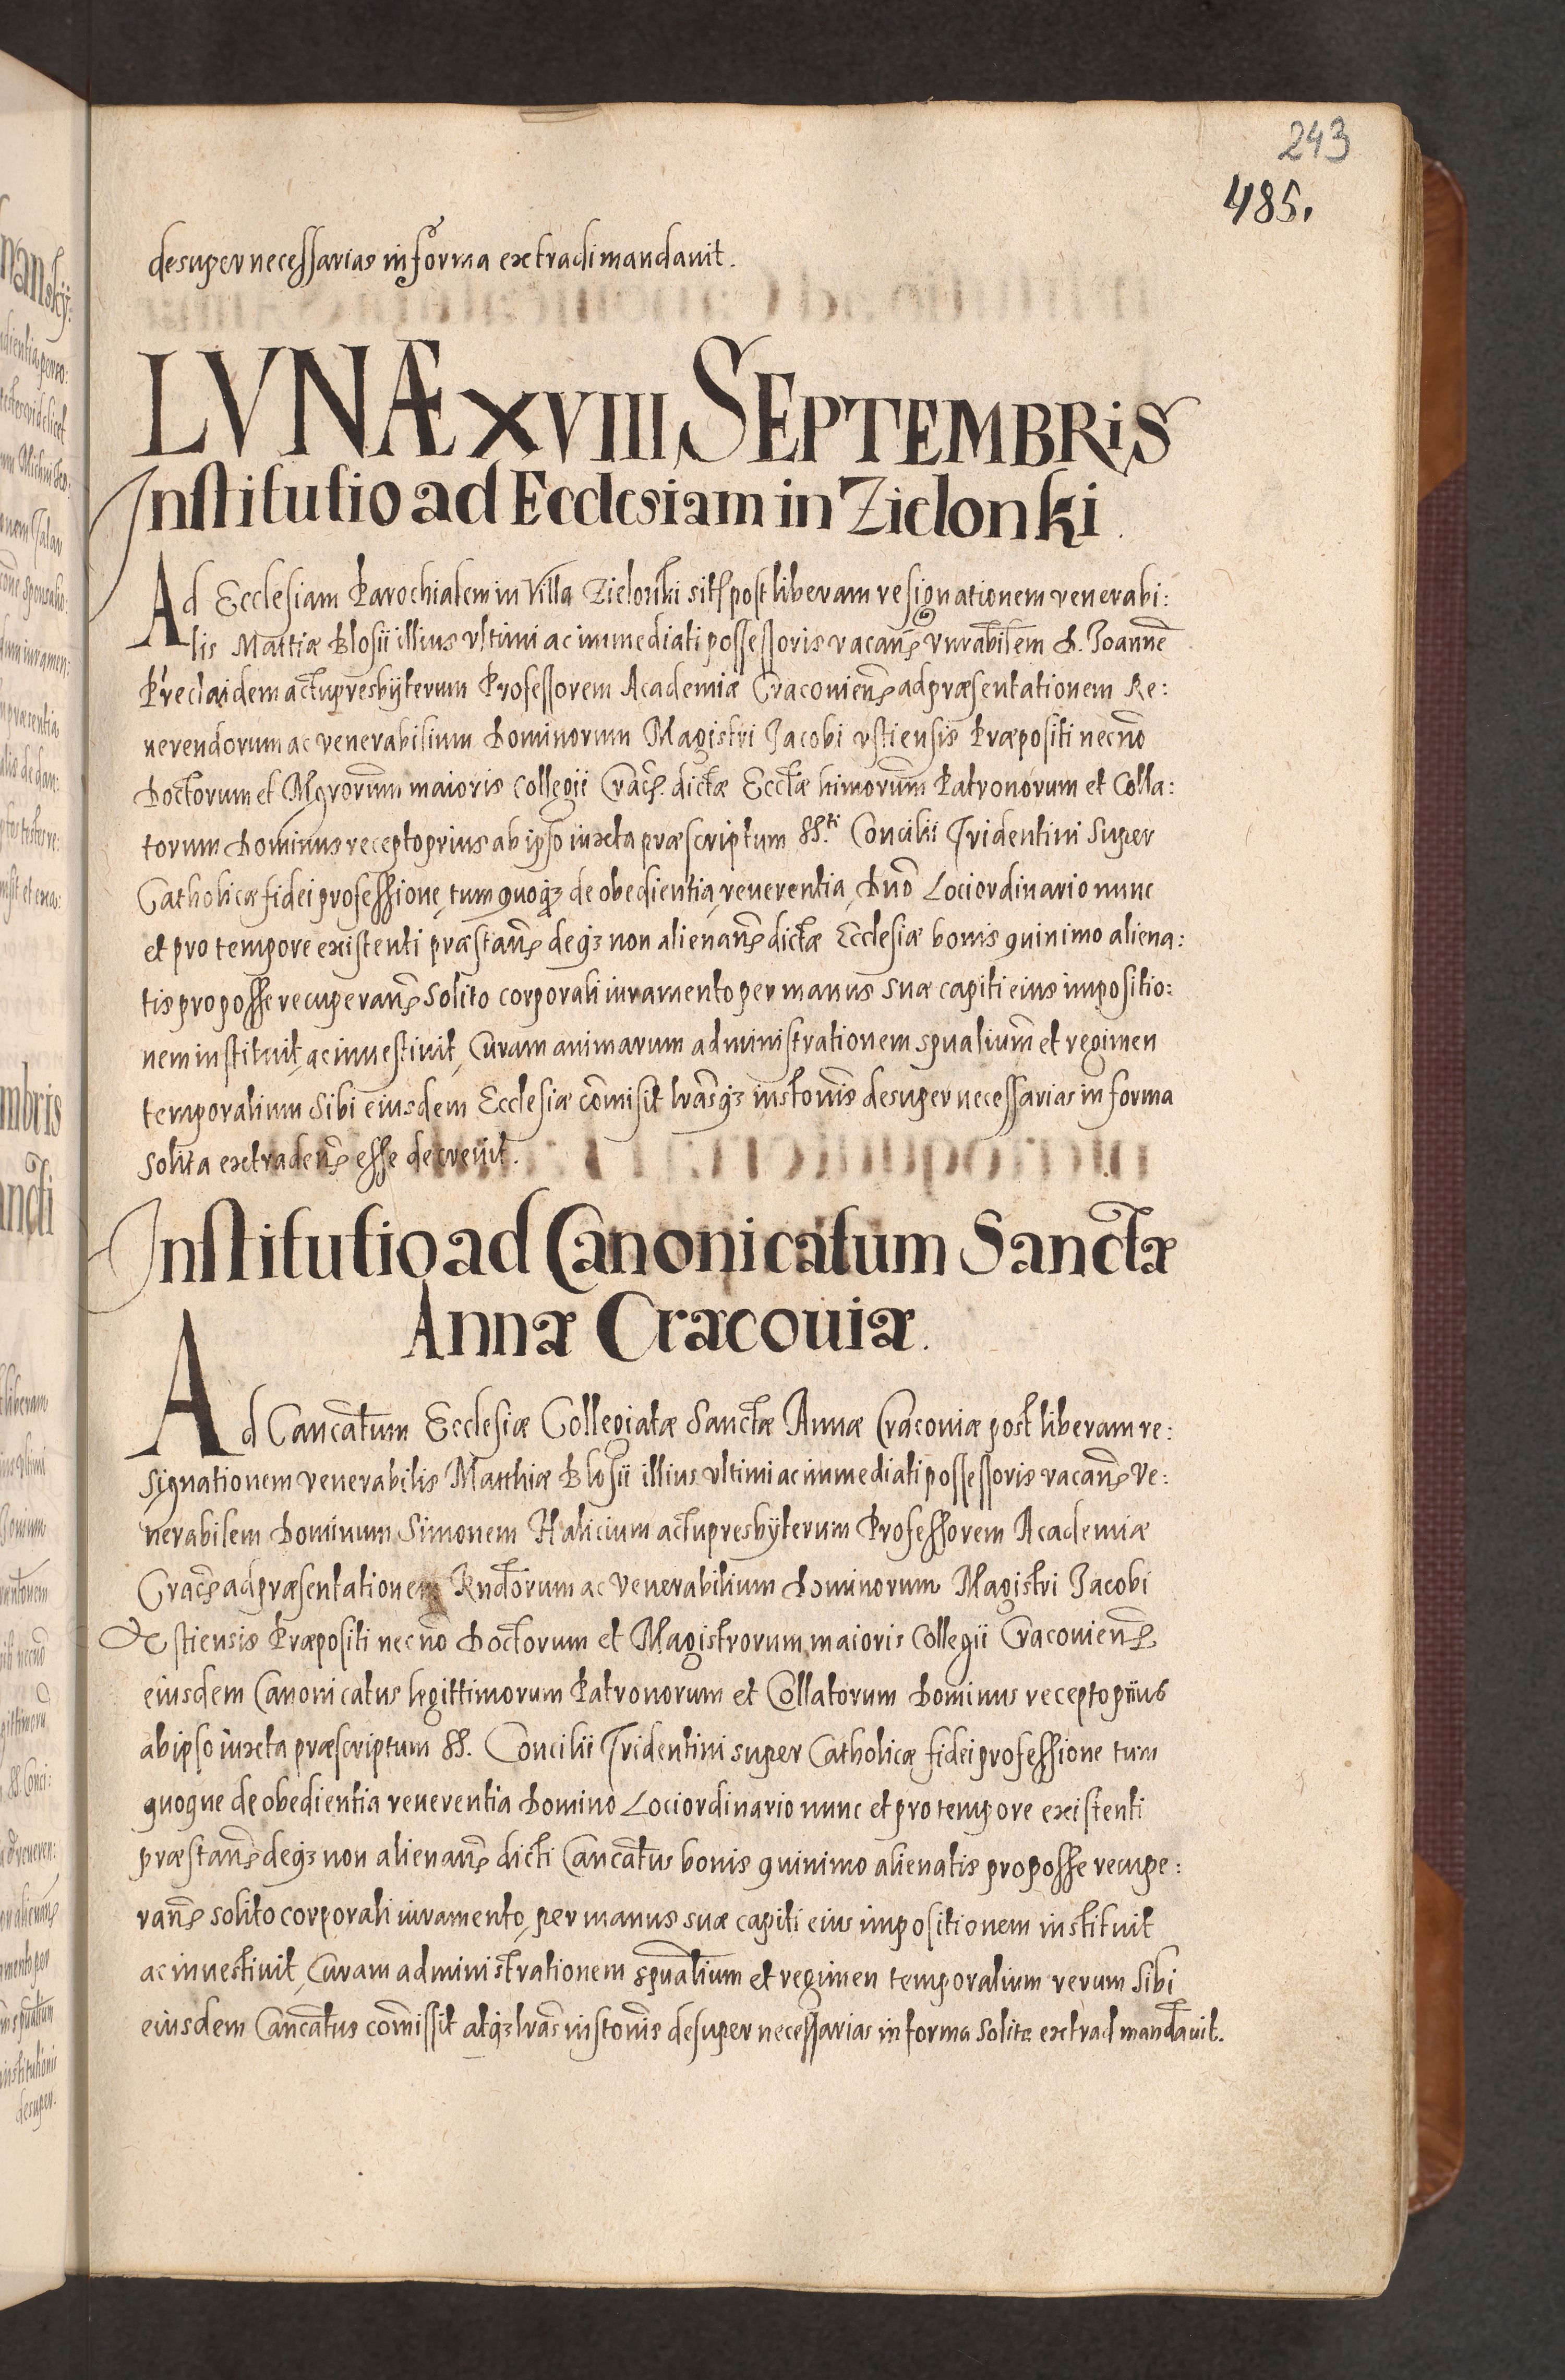 243
485.
desuper necessarias in forma extradi mandavit.
LVNÆ XVIII SEPTEMBRiS
Institutio ad Ecclesiam in Zielonki.
Ad Ecclesiam Parochialem in Villa Zielonki sit post liberam resignationem venerabi:
lis Mattiæ Blosii illius vltimi ac immediati possessoris vacan̄ vnrabilem D. Joannē
actu presbÿterum Professorem Academiæ Cracovien̄ ad præsentationem Re:
verendorum ac venerabilium Dominorum Magistri Jacobi vstiensis Præpositi necnō
Doctorum et Mgrorum̄ maioris Collegii Crac̄ dictæ Ecctæ ltimorum̄ Patronorum et Colla:
torum Dominus recepto prius ab ipso iuxta præscriptum SS.ti Concilii Tridentini super
Catholicæ fidei professione, tum quoq3 de obedientia, reverentia, Dnō Lociordinario nunc
et pro tempore existenti præstan̄ deq3 non alienan̄ dictæ Ecclesiæ bonis quinimo aliena:
tis pro posse recuperan̄ solito corporali iuramento per manus suæ capiti eius impositio:
nem instituit, ac investivit, Curam animarum administrationem spualium̄ et regimen
temporalium sibi eiusdem Ecclesiæ com̄isit lrasq3 instonis desuper necessarias in forma
solita extraden̄ esse decrevit.
Institutio ad Canonicatum Sanctæ
Annæ Cracouiæ.
Ad Cancatum Ecclesiæ Collegiatæ Sanctæ Annæ Cracoviæ post liberam re:
signationem venerabilis Matthiæ Blosii illius vltimi ac immediati possessoris vacan̄ Ve:
nerabilem Dominum Simonem Halicium actu presbÿterum Professorem Academiæ
Crac̄ ad præsentationem Rndorum ac Venerabilium Dominorum Magistri Jacobi
Vstiensis Præpositi necnō Doctorum et Magistrorum maioris Collegii Cracovien̄
eiusdem Canonicatus legittimorum Patronorum et Collatorum Dominus recepto prius
ab ipso iuxta præscriptum SS. Concilii Tridentini super Catholicæ fidei professione tum
quoque de obedientia reverentia Domino Lociordinario nunc et pro tempore existenti
præstan̄ deq3 non alienan̄ dicti Cancatus bonis quinimo alienatis pro posse recupe:
ran̄ solito corporali iuramento, per manus suæ capiti eius impositionem instituit
ac investivit, Curam administrationem spualium et regimen temporalium rerum sibi
eiusdem Cancatus com̄issit atq3 lras instonis desuper necessarias in forma solita extradi mandavit.